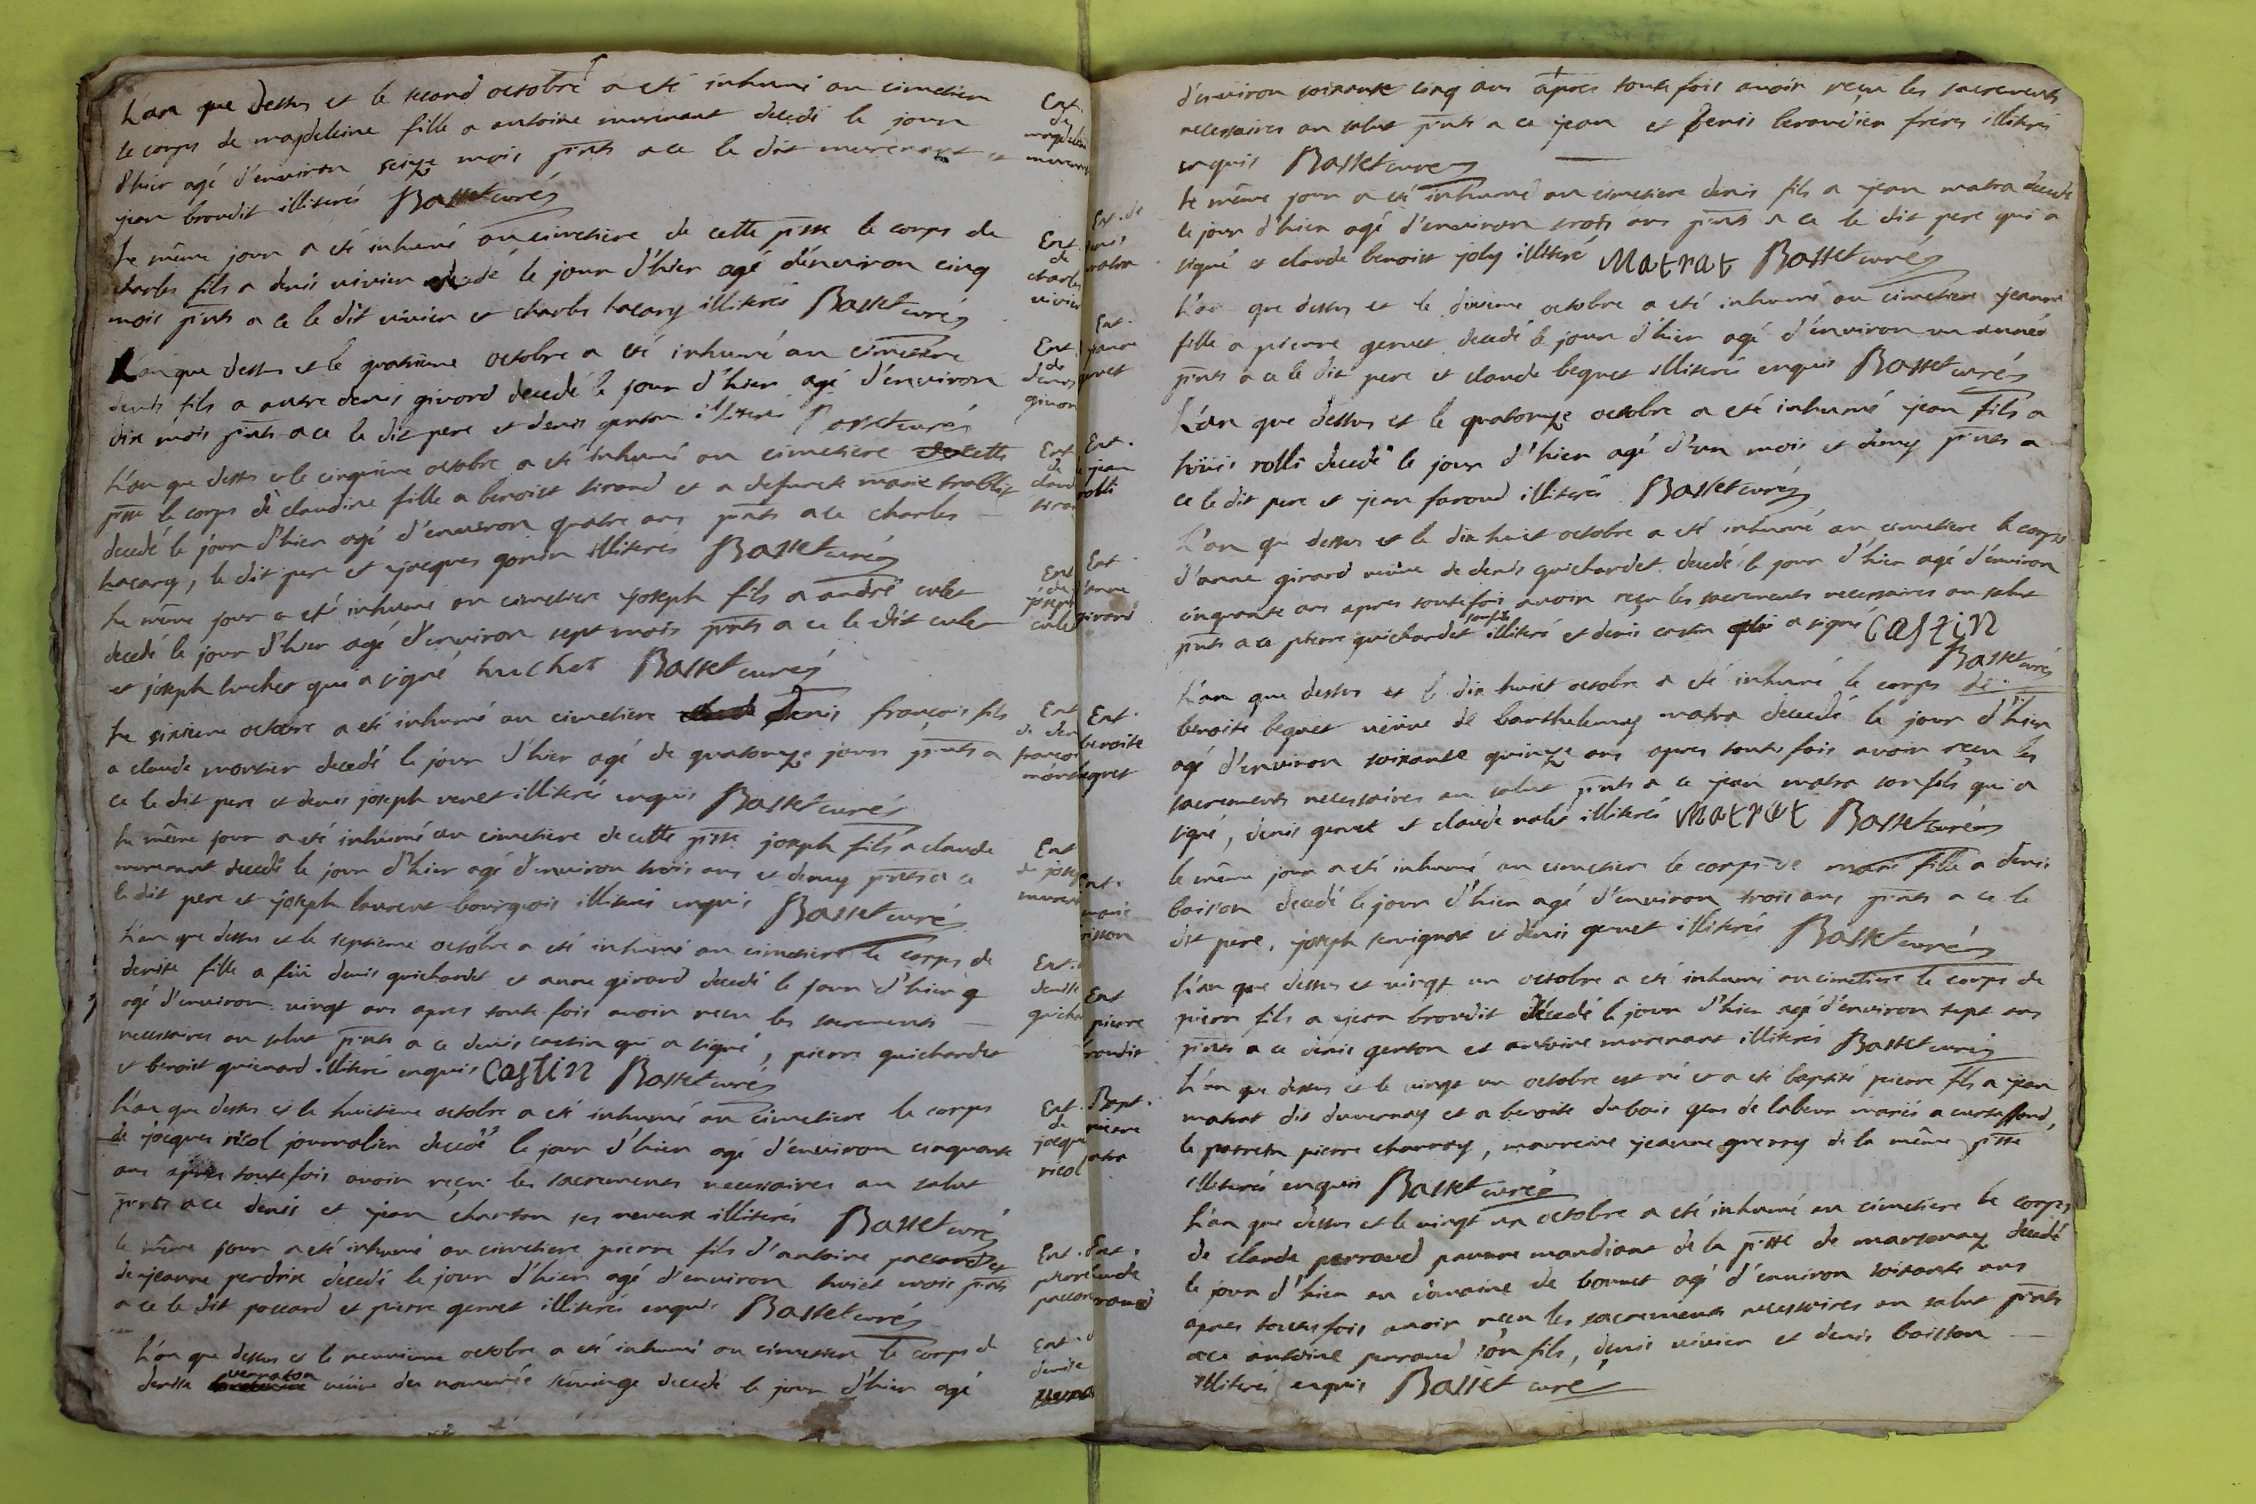 L'an que dessus et le second octobre a eté inhumé au cimetiere
le corps de magdeleine fille a antoine murenant decedé le jour
d'hier agé d'environ seize mois pnts a ce le dit murenant et
jean brondit illiterés Basset curé
Ent.
de
magdeleine
murenant
Le même jour a eté inhumé au cimetiere de cette psse le corps de
charles fils a denis vivien decedé le jour d'hier agé d'environ cinq
mois pnts a ce le dit vivien et charles lacary illiterés Basset curé
Ent.
de
charles
vivien
L'an que dessus et le quatrieme octobre a eté inhumé au cimetiere
denis fils a autre denis givord decedé le jour d'hier agé d'environ
dix mois pnts a ce le dit pere et denis genton illiterés Basset curé
Ent.
de
denis
givor
L'an que dessus et le cinquieme octobre a eté inhumé au cimetiere de cette
psse le corps de claudine fille a benoist sirand et a defuncte marie
decedé le jour d'hier agé d'environ quatre ans pnts a ce charles
lacary, le dit pere et jacques gonin illiterés Basset curé
Ent
de
claud
siran
Le même jour a eté inhumé au cimetiere joseph fils a andré culet
decedé le jour d'hier agé d'environ sept mois pnts a ce le dit culet
et joseph huchet qui a signé huchet Basset curé
Ent
de
joseph
culet
Le sixieme octobre a eté inhumé au cimetiere denis françois fils
a claude mortier decedé le jour d'hier agé de quatorze jours pnts a
ce le dit pere et denis joseph venet illiterés enquis Basset curé
Ent
de den
françois
mort
Le même jour a eté inhumé au cimetiere de cette psse joseph fils a claude
murenant decedé le jour d'hier agé d'environ trois ans et demy pnts a ce
le dit pere et joseph laurent bourgeois illiterés enquis Basset curé
Ent
de josep
muren
L'an que dessus et le septieme octobre a eté inhumé au cimetiere le corps de
denise fille a feü denis guichardet et anne girard decedé le jour d'hier
agé d'environ vingt ans apres toute fois avoir reçu les sacrements
necessaires au salut pnts a ce denis castin qui a signé, pierre guichardet
et benoist guienard illiterés enquis Castin Basset curé
Ent.
denise
guicha
L'an que dessus et le huitieme octobre a eté inhumé au cimetiere le corps
de jacques ricol journalier decedé le jour d'hier agé d'environ cinquante
ans apres toute fois avoir reçu les sacrements necessaires au salut
pnts a ce denis et jean charton ses neveux illiterés Basset curé
Ent.
de
jacque
ricol
le même jour a eté inhumé au cimetiere pierre fils d'antoine paccard et
de jeanne perdrix decedé le jour d'hier agé d'environ huict mois pnts
a ce le dit paccard et pierre genet illiterés enquis Basset curé
Ent.
pierre
paccar
L'an que dessus et le neuvieme octobre a eté inhumé au cimetiere le corps de
denise verraton veüve de decedé le jour d'hier agé
Ent. d
denise
d'environ soixante cinq ans apres toute fois avoir reçu les sacrements
necessaires au salut pnts a ce jean et denis beraudier frères illiterés
enquis Basset curé
le même jour a eté inhumé au cimetiere denis fils a jean matra decedé
le jour d'hier agé d'environ trois ans pnts a ce le dit pere qui a
signé et claude benoist joly illiteré Matrat Basset curé
Ent. de
denis
matra
L'an que dessus et le dixieme octobre a eté inhumé au cimetiere jeanne
fille a pierre genet decedé le jour d'hier agé d'environ un année
pnts a ce le dit pere et claude beguet illiterés enquis Basset curé
Ent.
jeanne
genet
L'an que dessus et le quatorze octobre a eté inhumé jean fils a
loüis rolli decedé le jour d'hier agé d'un mois et demy pnts a
ce le dit pere et jean faroud illiterés Basset curé
Ent.
jean
rolli
L'an que dessus et le dix huict octobre a eté inhumé au cimetiere le corps
d'anne girard veüve de denis guichardet decedé le jour d'hier agé d'environ
cinquante ans apres toute fois avoir reçu les sacrements necessaires au salut
pnts a ce pierre guichardet son fils illiteré et denis castin qui a signé Castin
Basset curé
Ent
d'anne
girard
L'an que dessus et le dix huict octobre a eté inhumé le corps de
benoite beguet veüve de barthelemy matra decedé le jour d'hier
agé d'environ soixante quinze ans apres toute fois avoir reçu les
sacrements necessaires au salut pnts a ce jean matra son fils qui a
signé, denis genet et claude illiterés Matrat Basset curé
Ent.
benoite
beguet
le même jour a eté inhumé au cimetiere le corps de marie fille a denis
boisson decedé le jour d'hier agé d'environ trois ans pnts a ce le
dit pere, joseph servignat et denis genet illiterés Basset curé
Ent.
marie
boisson
L'an que dessus et vingt un octobre a eté inhumé au cimetiere le corps de
pierre fils a jean brondit decedé le jour d'hier agé d'environ sept ans
pnts a ce denis genton et antoine murenant illiterés Basset curé
Ent
pierre
brondit
L'an que dessus et le vingt un octobre est né et a eté baptisé pierre fils a jean
matrat dit duvernay et a benoite dubois gens de labeur mariés a curtaffond,
le parrein pierre charnay, marreine jeanne guerry de la même psse
illiterés enquis Basset curé
Bapt.
pierre
matra
L'an que dessus et le vingt un octobre a eté inhumé au cimetiere le corps
de claude perraud pauvre mandiant de la psse de marsonnaz decedé
le jour d'hier au domaine de bonnet agé d'environ soixante ans
apres toutefois avoir reçu les sacrements necessaires au salut pnts
a ce antoine perraud son fils, denis vivien et denis boisson
illiterés enquis Basset curé
Ent.
claude
perraud